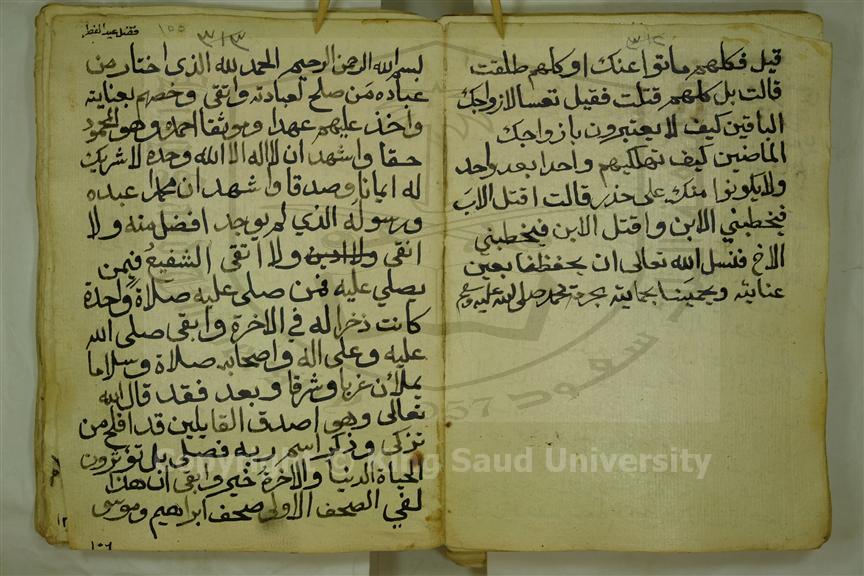 ٣١٢
قيل فكلهم ماتوا عنك او كلهم طلقت
قالت بل كلهم قتلت فقيل تعسا لازواجك
الباقين كيف لا يعتبرون بازواجك
الماضين كيف تهلكيهم واحدا بعد واحد
ولا يكونوا منك على حذر قالت اقتل الاب
فيخطبني الابن واقتل الابن فيخطبني
الاخ فنسل الله تعالى ان يحفظنا بعين
عنايته ويحمينا بحمايته بحرمة محمد صلى الله عليه وسلم
فضل عيد الفطر
١٥٥
٣١٣
بسم الله الرحمن الرحيم الحمد لله الذي اختار من
عباده من صلح لعبادته واتقى وخصهم بعنايته
واخذ عليهم عهدا وموثقا احمده وهو المحمود
حقا واشهد ان لا اله الا الله وحده لا شريك
له ايمانا وصدقا واشهد ان محمدا عبده
ورسوله الذي لم يوجد افضل منه ولا
انقى ولا ولا اتقى الشفيع فيمن
يصلي عليه فمن صلى عليه صلاة واحدة
كانت ذخرا له في الاخرة وابقى صلى الله
عليه وعلى اله واصحابه صلاة وسلاما
يملأن غربا وشرقا وبعد فقد قال الله
تعالى وهو اصدق القايلين قد افلح من
تزكى وذكر اسم ربه فصلى بل توثرون
الحياة الدنيا والاخرة خير وابقى ان هذا
لفي الصحف الاولى صحف ابراهيم وموسى
١٥٦
Copyright © King Saud University
1957